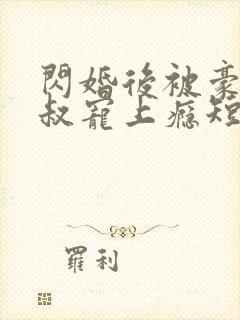 閃婚後被豪
叔寵上癮短
羅利